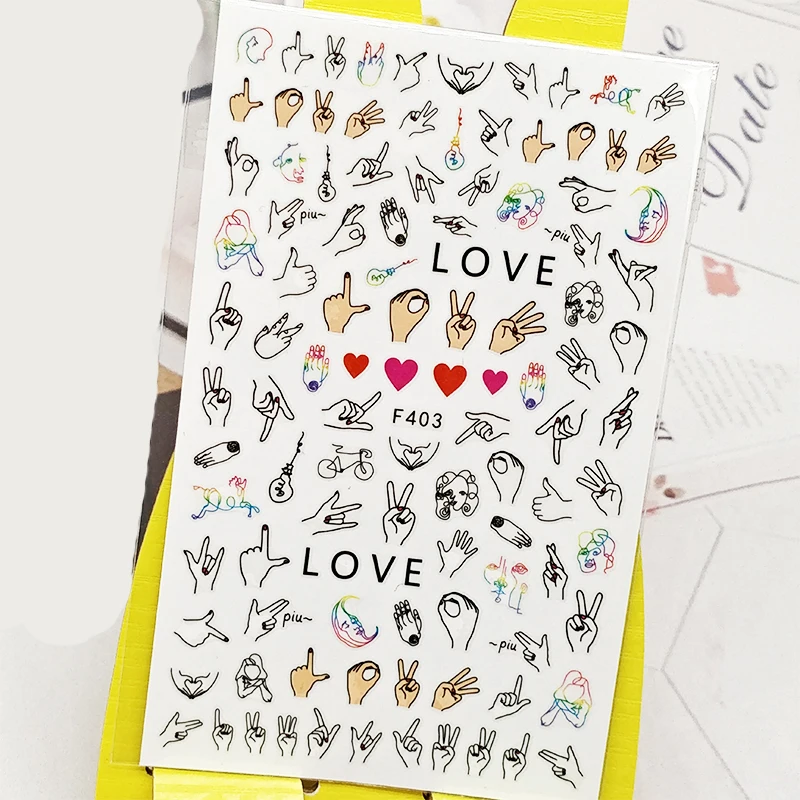 Date
~piu
piu~
LOVE
F403
LOVE
piu~
~piu